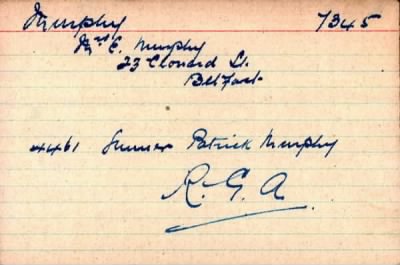 Murphy 7345
Mrs E. Murphy
23 Clonard St.
Belfast
4461 Gunner Patrick Murphy
R. G. A.